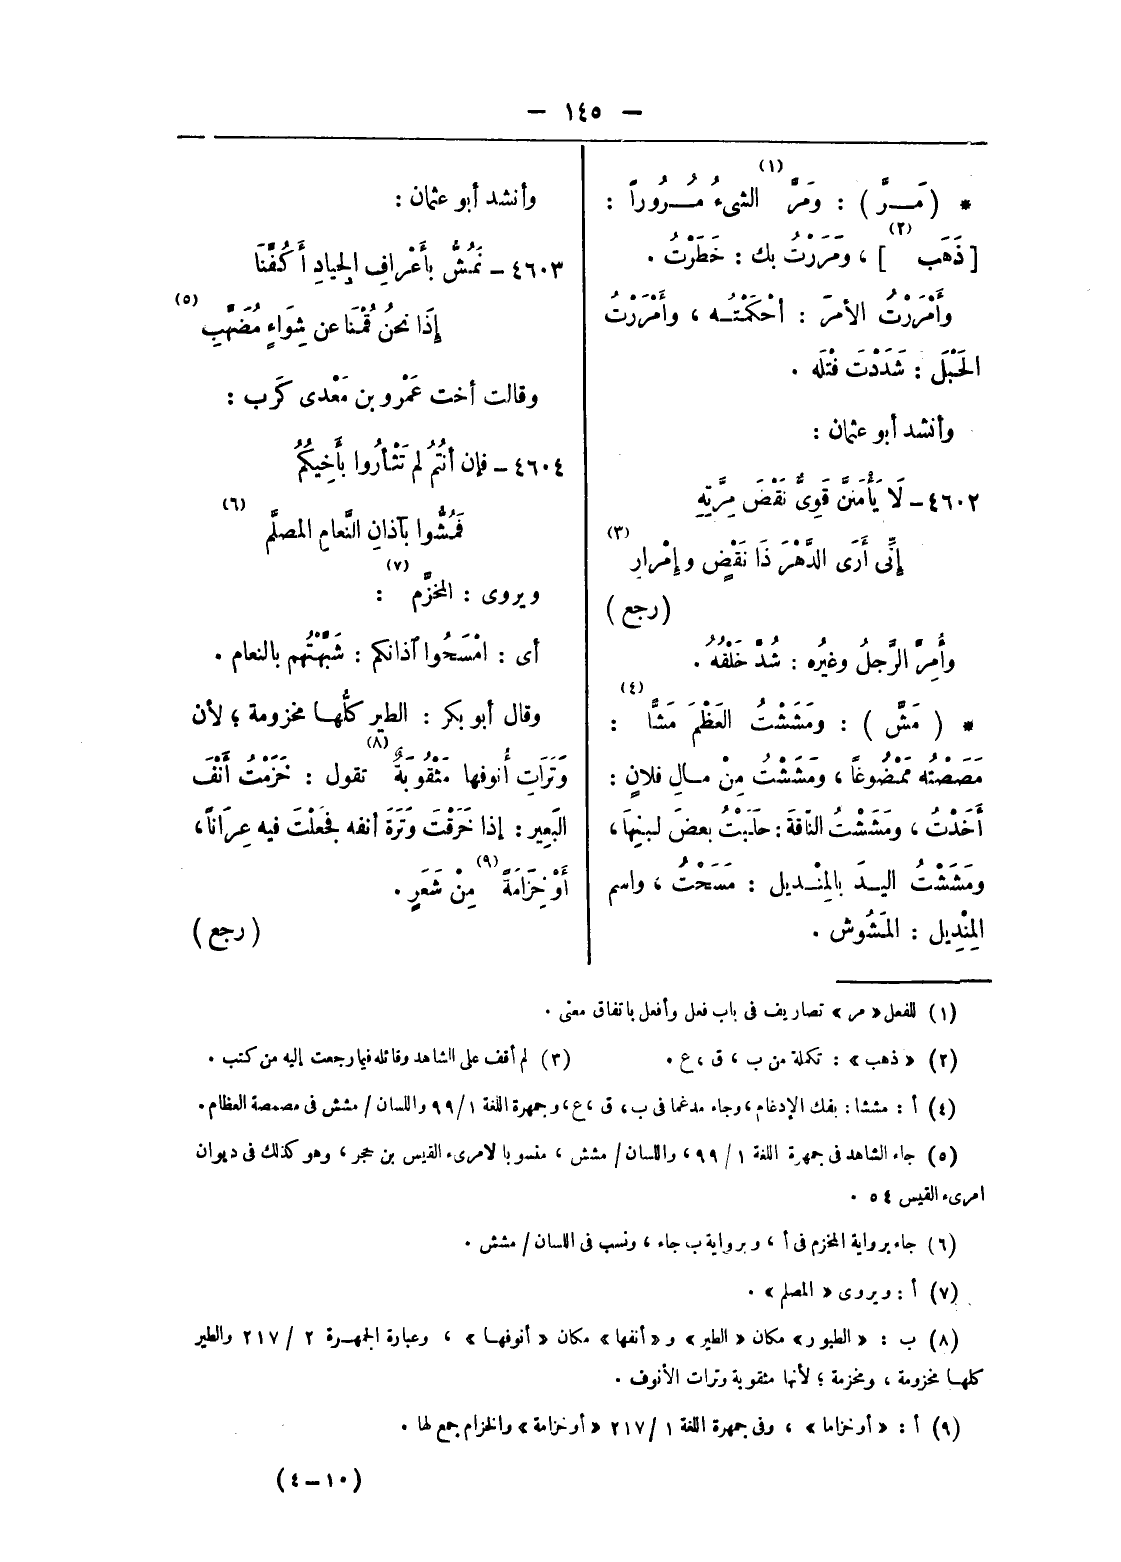 — ١٤٥ —
* ( مَـرَّ ) : ومَرَّ (١) الشىءُ مُـرُوراً :
[ ذَهَب (٢) ] ، ومَررَتْ بك : خَطَرْتُ .
وأَمْرَرْتُ الأمرَ : أحْكَمْتُـه ، وأمْرَرْتُ
الحَبْلَ : شَدَدْتَ فتْلَه .
وأنشد أبو عثمان :
٤٦٠٢ – لَا يَأْمَنَنَّ قَوِىٌّ نَقْضَ مِرَّتِهِ
إِنِّى أَرَى الدَّهْرَ ذَا نَقْضٍ وإِمْرارِ (٣)
( رجع )
وأُمِرَّ الرَّجلُ وغيُره : شُدَّ خَلْقُهُ .
* ( مَشَّ ) : ومَشَشْتُ العَظْمَ مَشًّا (٤) :
مَصَصْتُه مَمْضُوغًا ، ومَشَشْتُ مِنْ مـالِ فلانٍ :
أَخَذْتُ ، ومَشَشْتُ النَّاقَةَ : حلَبْتُ بعضَ لبـنِها ،
ومَشَشْتُ اليـدَ بالمِنْـديل : مَسَحْتُ ، واسم
المِنْدِيل : المَشُوش .
وأنشد أبو عثمان :
٤٦٠٣ – نَمُشُّ بأَعْرافِ الجِيادِ أَكُفَّنَا
إِذَا نحنُ قُمْنَا عن شِوَاءٍ مُضَهَّبِ (٥)
وقالت أخت عَمْرو بن مَعْدى كَرِب :
٤٦٠٤ – فإن أنْتُمُ لم تَثْأروا بأَخِيكُمُ
فَمُشُّوا بآذانِ النَّعامِ المصلَّم (٦)
ويروى : المخزَّم (٧) :
أى : امْسَحُوا آذانكم : شَبَّهَتْهُم بالنعام .
وقال أبو بكر : الطير كلُّهـا مخزومة ؛ لأن
وَتَراتِ أُنوفها مَثْقُوبَةٌ (٨) تقول : خَزَمْتُ أَنْفَ
البَعِير : إذا خَرَقْتَ وَتَرَةَ أنفه فجَعَلْتَ فيه عِرَاناً ،
أَوْ خِزَامَةً (٩) مِنْ شَعَرٍ .
( رجع )
(١) للفعل « مر » تصاريف فى باب فعل وأفعل باتفاق معنى .
(٢) « ذهب » : تكملة من ب ، ق ، ع . (٣) لم أقف على الشاهد وقائله فيما رجعت إليه من كتب .
(٤) أ : مششا : بفك الإدغام ، وجاء مدغما فى ب ، ق ، ع ، وجمهرة اللغة ١ / ٩٩ واللسان / مشش فى مصمصة العظام .
(٥) جاء الشاهد فى جمهرة اللغة ١ / ٩٩ ، واللسان / مشش ، منسوبا لامرىء القيس بن حجر ، وهو كذلك فى ديوان
امرىء القيس ٥٤ .
(٦) جاء برواية المخزم فى أ ، وبرواية ب جاء ، ونسب فى اللسان / مشش .
(٧) أ : ويروى « المصلم » .
(٨) ب : « الطيور » مكان « الطير » و « أنفها » مكان « أنوفهـا » ، وعبارة الجمهـرة ٢ / ٢١٧ والطير
كلهـا مخزومة ، ومخزمة ؛ لأنها مثقوبة وترات الأنوف .
(٩) أ : « أو خزاما » ، وفى جمهرة اللغة ١ / ٢١٧ « أو خزامة » والخزام جمع لها .
(١٠ – ٤)